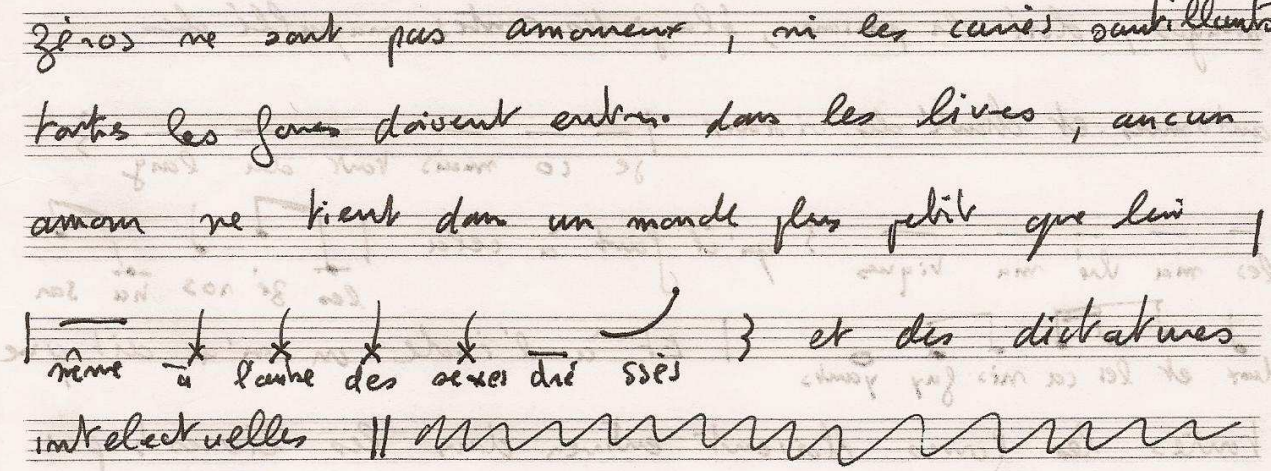 zéros ne sont pas amoureux , ni les carrés sautillants
toutes les doivent entrer dans les livres , aucun
amour ne tient dans un monde plus petit que lui
même à l'aube des sexes dré ssés } et des dictatures
intelectuelles